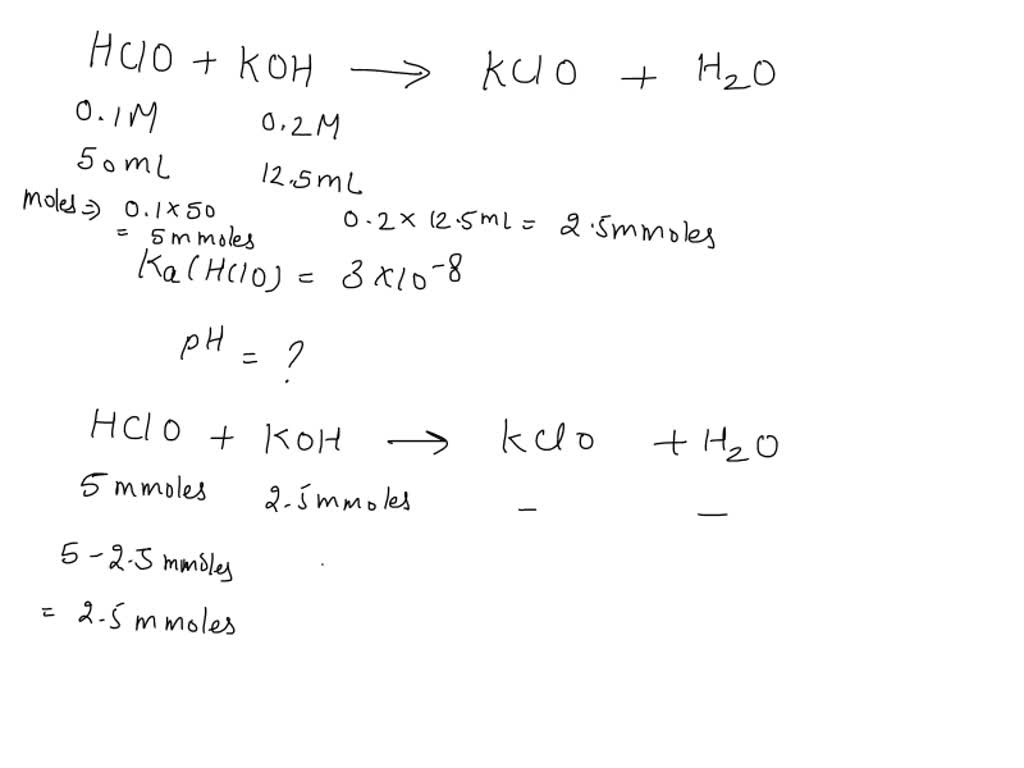 HClO + KOH ⟶ KClO + H₂O
0.1M 0.2M
50mL 12.5mL
moles ⇒ 0.1×50 0.2×12.5mL = 2.5mmoles
= 5mmoles
Ka(HClO) = 3×10⁻⁸
pH = ?
HClO + KOH ⟶ KClO + H₂O
5mmoles 2.5mmoles – –
5-2.5mmoles
= 2.5mmoles